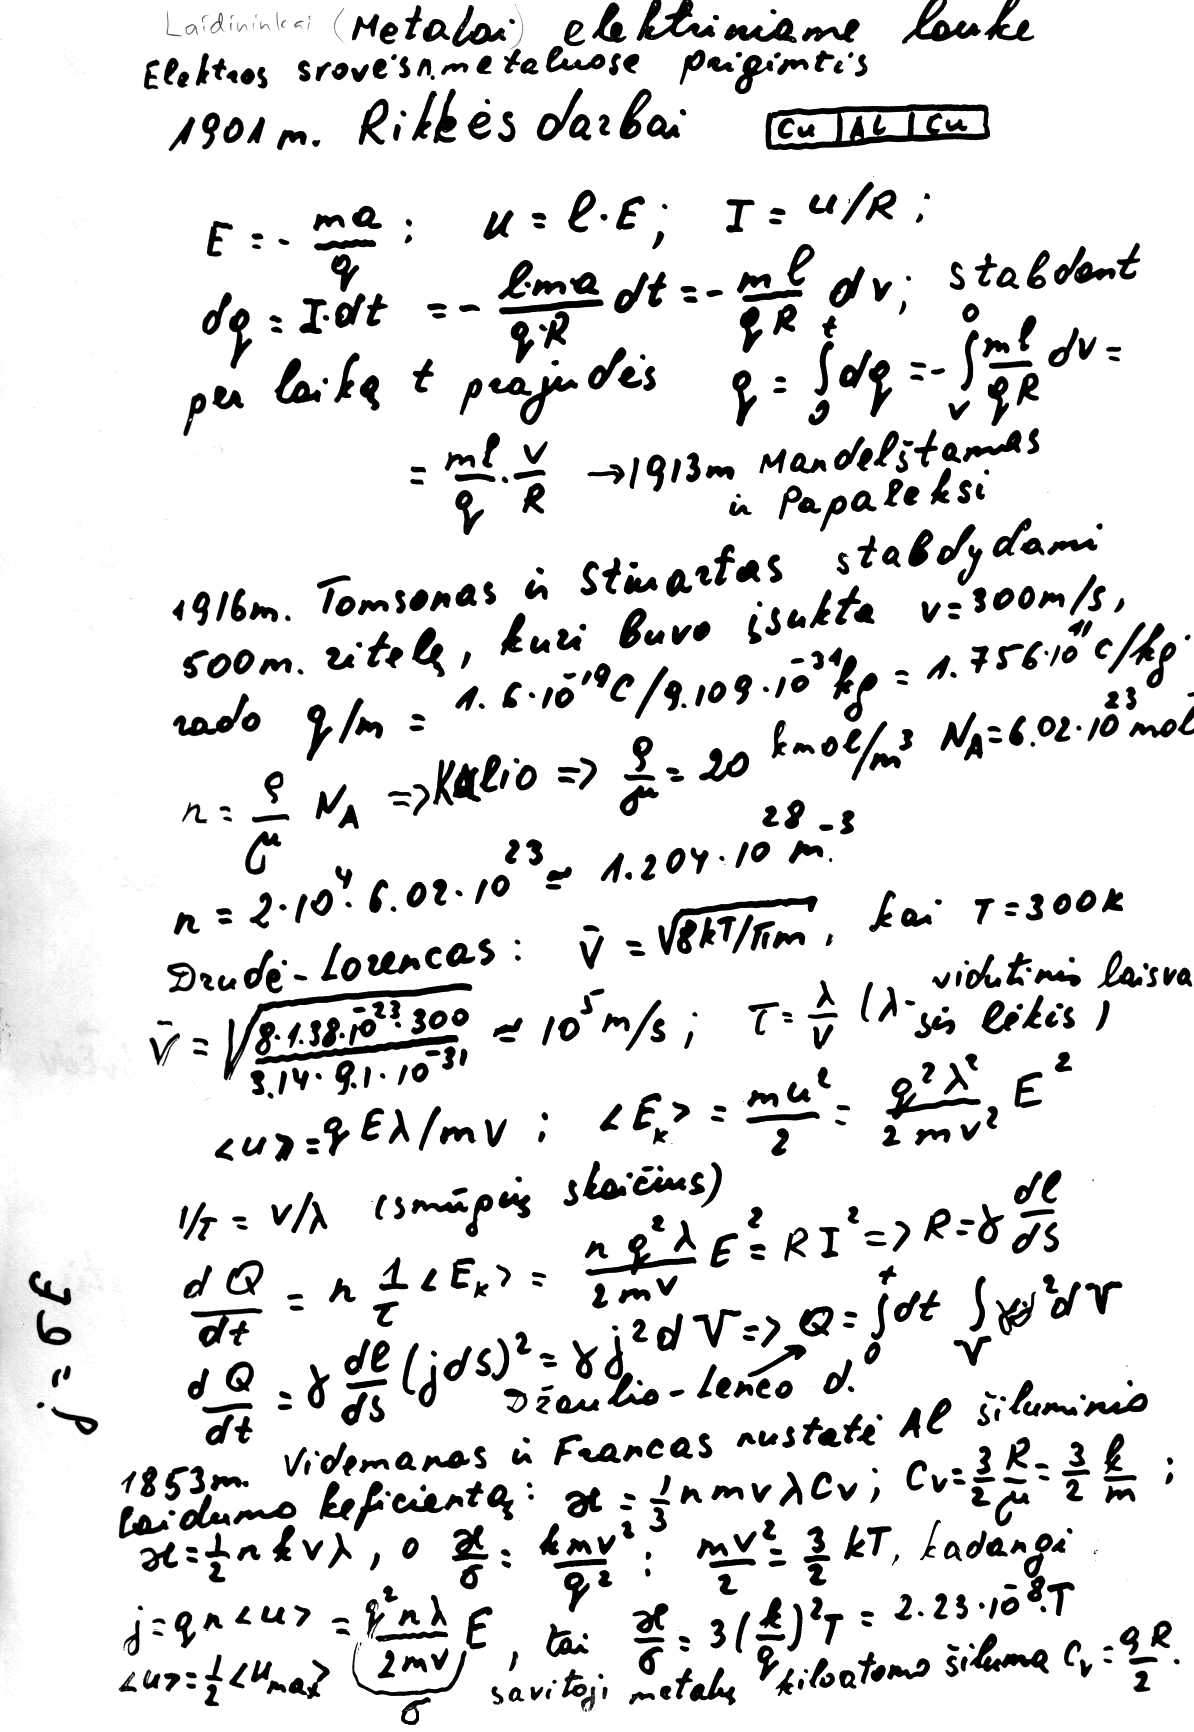 Laidininkai (Metalai) elektriniame lauke
Elektros srovės metaluose prigimtis
1901 m. Rikkės darbai Cu | Al | Cu
E = - ma/q ; u = l·E ; I = u/R ;
dq = I·dt = - l·ma/q·R dt = - ml/qR dv ; stabdant
per laiką t prajudės q = ∫₀ᵗ dq = - ∫ᵥ⁰ ml/qR dv =
= ml/q · v/R → 1913m Mandelštamas
ir Papaleksi
1916m. Tomsonas ir Stiuartas stabdydami
500m. ritelę, kuri buvo įsukta v = 300m/s,
rado q/m = 1.6·10⁻¹⁹C/9.109·10⁻³¹kg = 1.756·10¹¹C/kg.
n = ρ/μ N_A => Kalio => ρ/μ = 20 kmol/m³ N_A = 6.02·10²³ mol⁻
n = 2·10⁴·6.02·10²³ ≃ 1.204·10²⁸ m⁻³.
Drudė-Lorencas: v̄ = √8kT/πm, kai T = 300K
v̄ = √8·1.38·10⁻²³·300/3.14·9.1·10⁻³¹ ≃ 10⁵ m/s ; τ = λ/v (λ - vidutinis laisva
sis lėkis)
<u> = qEλ/mv ; <E_k> = mu²/2 = q²λ²/2mv² E²
1/τ = v/λ (smūgių skaičius)
dQ/dt = n 1/τ <E_k> = nq²λ/2mv E² = RI² => R = γ dl/ds
dQ/dt = γ dl/ds (jds)² = γj²dV => Q = ∫₀ᵗ dt ∫_V γj²dV
Džaulio-Lenco d.
j = 99 3
1853m. Videmanas ir Francas nustatė Al šiluminio
laidumo keficientą: æ = 1/3 nmvλC_v ; C_v = 3/2 R/μ = 3/2 k/m ;
æ = 1/2 nkvλ, o æ/σ = kmv²/q² ; mv²/2 = 3/2 kT, kadangi
j = qn<u> = q²nλ/2mv E, tai æ/σ = 3(k/q)²T = 2.23·10⁻⁸·T
<u> = 1/2 <u_max> σ savitoji metalų kiloatomo šiluma C_v = 9R/2.